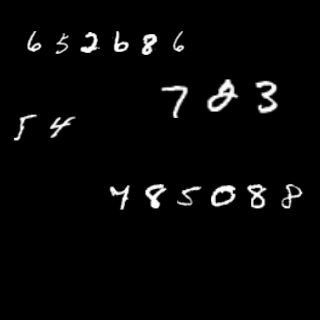 652686
783
54
485088